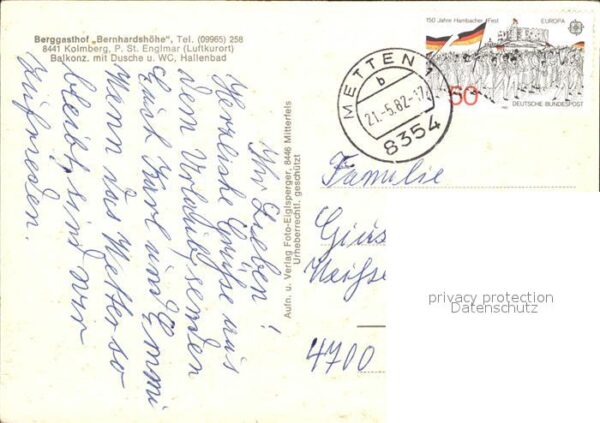 Berggasthof „Bernhardshöhe", Tel. (09965) 258
8441 Kolmberg, P. St. Englmar (Luftkurort)
Balkonz. mit Dusche u. WC, Hallenbad
Ihr Lieben!
Herzliche Grüße aus
dem Urlaub senden
Euch Karl und Emmi
Wenn das Wetter so
bleibt, sind wir
zufrieden.
Aufn. u. Verlag Foto-Eiglsperger, 8446 Mitterfels
Urheberrechtl. geschützt
150 Jahre Hambacher Fest
EUROPA
50
DEUTSCHE BUNDESPOST
METTEN 1
b
21.-5.82.-17
8354
Familie
4700
privacy protection
Datenschutz